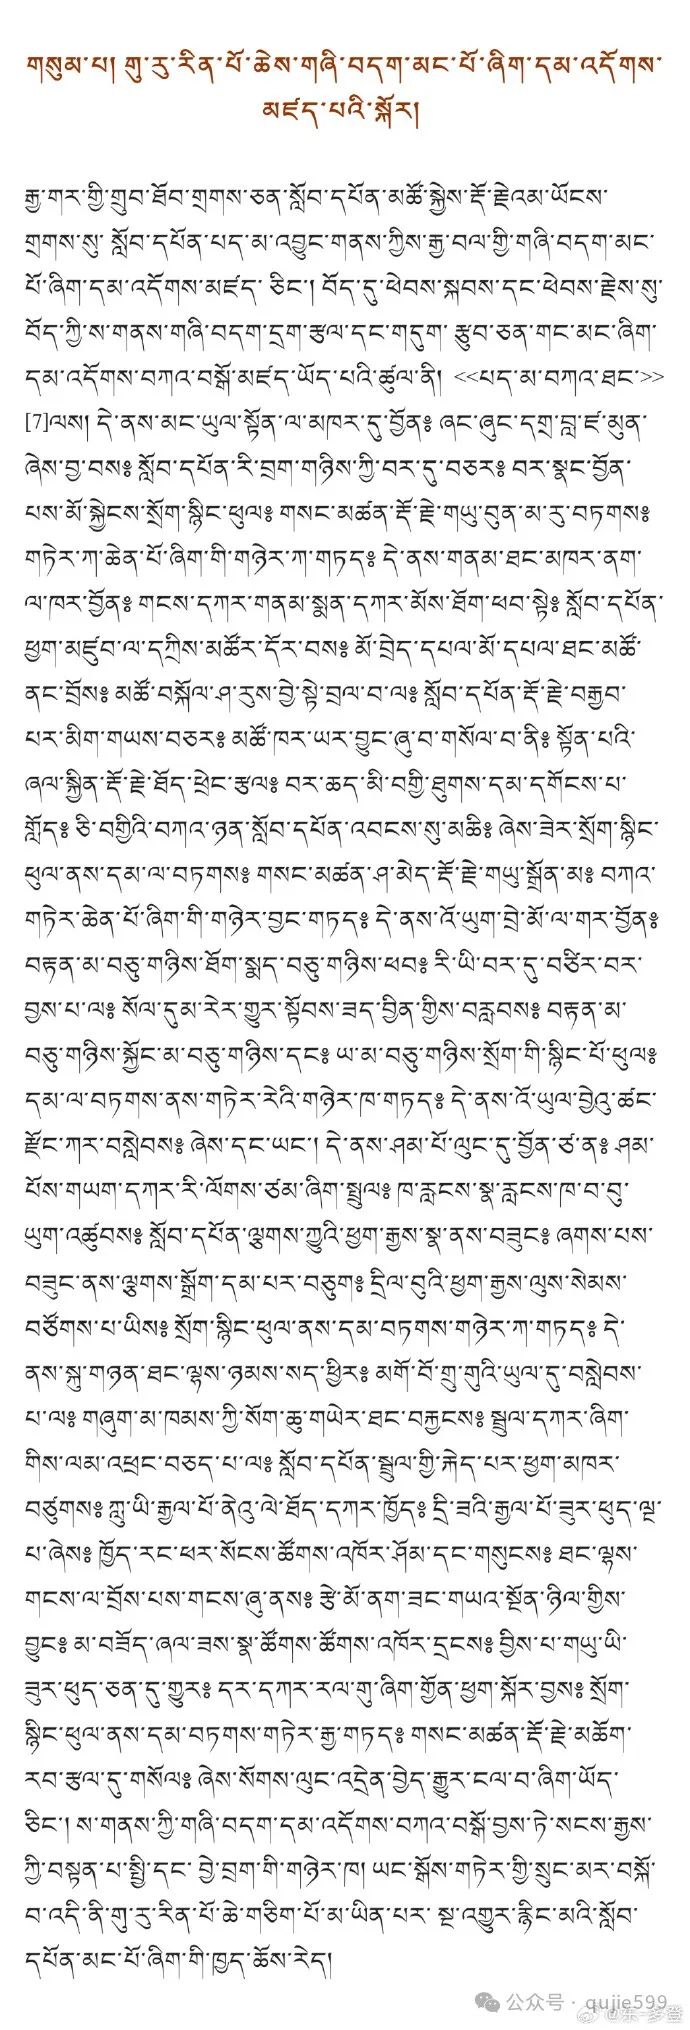 གསུམ་པ། གུ་རུ་རིན་པོ་ཆེས་གཞི་བདག་མང་པོ་ཞིག་དམ་འདོགས་
མཛད་པའི་སྐོར།
རྒྱ་གར་གྱི་གྲུབ་ཐོབ་གྲགས་ཅན་སློབ་དཔོན་མཚོ་སྐྱེས་རྡོ་རྗེའམ་ཡོངས་
གྲགས་སུ་ སློབ་དཔོན་པད་མ་འབྱུང་གནས་ཀྱིས་རྒྱ་བལ་གྱི་གཞི་བདག་མང་
པོ་ཞིག་དམ་འདོགས་མཛད་ ཅིང་། བོད་དུ་ཕེབས་སྐབས་དང་ཕེབས་རྗེས་སུ་
བོད་ཀྱི་ས་གནས་གཞི་བདག་དྲག་རྩལ་དང་གདུག་ རྩུབ་ཅན་གང་མང་ཞིག་
དམ་འདོགས་བཀའ་བསྒོ་མཛད་ཡོད་པའི་ཚུལ་ནི། <<པད་མ་བཀའ་ཐང་>>
[7]ལས། དེ་ནས་མང་ཡུལ་སྟོན་ལ་མཁར་དུ་བྱོན༔ ཞང་ཞུང་དགྲ་བླ་ཛ་མུན་
ཞེས་བྱ་བས༔ སློབ་དཔོན་རི་བྲག་གཉིས་ཀྱི་བར་དུ་བཅར༔ བར་སྣང་བྱོན་
པས་མོ་སྐྱེངས་སྲོག་སྙིང་ཕུལ༔ གསང་མཚན་རྡོ་རྗེ་གཡུ་བུན་མ་རུ་བཏགས༔
གཏེར་ཀ་ཆེན་པོ་ཞིག་གི་གཉེར་ཀ་གཏད༔ དེ་ནས་གནམ་ཐང་མཁར་ནག་
ལ་ཁར་བྱོན༔ གངས་དཀར་གནམ་སྨན་དཀར་མོས་ཐོག་ཕབ་སྟེ༔ སློབ་དཔོན་
ཕྱག་མཛུབ་ལ་དཀྲིས་མཚོར་དོར་བས༔ མོ་བྲེད་དཔལ་མོ་དཔལ་ཐང་མཚོ་
ནང་བྲོས༔ མཚོ་བསྐོལ་ཤ་རུས་བྱེ་སྟེ་བྲལ་བ་ལ༔ སློབ་དཔོན་རྡོ་རྗེ་བརྒྱབ་
པར་མིག་གཡས་བཅར༔ མཚོ་ཁར་ཡར་བྱུང་ཞུ་བ་གསོལ་བ་ནི༔ སྟོན་པའི་
ཞལ་སྐྱིན་རྡོ་རྗེ་ཐོད་ཕྲེང་རྩལ༔ བར་ཆད་མི་བགྱི་ཐུགས་དམ་དགོངས་པ་
གློད༔ ཅི་བགྱིའི་བཀའ་ཉན་སློབ་དཔོན་འབངས་སུ་མཆི༔ ཞེས་ཟེར་སྲོག་སྙིང་
ཕུལ་ནས་དམ་ལ་བཏགས༔ གསང་མཚན་ཤ་མེད་རྡོ་རྗེ་གཡུ་སྒྲོན་མ༔ བཀའ་
གཏེར་ཆེན་པོ་ཞིག་གི་གཉེར་བྱང་གཏད༔ དེ་ནས་འོ་ཡུག་བྲེ་མོ་ལ་གར་བྱོན༔
བརྟན་མ་བཅུ་གཉིས་ཐོག་སྨད་བཅུ་གཉིས་ཕབ༔ རི་ཡི་བར་དུ་བཙིར་བར་
བྱས་པ་ལ༔ སོལ་དུམ་རེར་གྱུར་སྟོབས་ཟད་བྱིན་གྱིས་བརླབས༔ བརྟན་མ་
བཅུ་གཉིས་སྐྱོང་མ་བཅུ་གཉིས་དང༔ ཡ་མ་བཅུ་གཉིས་སྲོག་གི་སྙིང་པོ་ཕུལ༔
དམ་ལ་བཏགས་ནས་གཏེར་རེའི་གཉེར་ཁ་གཏད༔ དེ་ནས་འོ་ཡུལ་བྱེའུ་ཚང་
རྫོང་ཀར་བསླེབས༔ ཞེས་དང་ཡང་། དེ་ནས་ཤམ་པོ་ལུང་དུ་བྱོན་ཙ་ན༔ ཤམ་
པོས་གཡག་དཀར་རི་ལོགས་ཙམ་ཞིག་སྤྲུལ༔ ཁ་རླངས་སྣ་རླངས་ཁ་བ་བུ་
ཡུག་འཚུབས༔ སློབ་དཔོན་ལྕགས་ཀྱུའི་ཕྱག་རྒྱས་སྣ་ནས་བཟུང༔ ཞགས་པས་
བཟུང་ནས་ལྕགས་སྒྲོག་དམ་པར་བཅུག༔ དྲིལ་བུའི་ཕྱག་རྒྱས་ལུས་སེམས་
བཙོགས་པ་ཡིས༔ སྲོག་སྙིང་ཕུལ་ནས་དམ་བཏགས་གཉེར་ཀ་གཏད༔ དེ་
ནས་སྐུ་གཉན་ཐང་ལྷས་ཉམས་སད་ཕྱིར༔ མགོ་བོ་གྲུ་གུའི་ཡུལ་དུ་བསླེབས་
པ་ལ༔ གཞུག་མ་ཁམས་ཀྱི་སོག་ཆུ་གཡེར་ཐང་བརྐྱངས༔ སྦྲུལ་དཀར་ཞིག་
གིས་ལམ་འཕྲང་བཅད་པ་ལ༔ སློབ་དཔོན་སྦྲུལ་གྱི་རྐེད་པར་ཕྱག་མཁར་
བཙུགས༔ ཀླུ་ཡི་རྒྱལ་པོ་ནེའུ་ལེ་ཐོད་དཀར་ཁྱོད༔ དྲི་ཟའི་རྒྱལ་པོ་ཟུར་ཕུད་ལྔ་
པ་ཞེས༔ ཁྱོད་རང་ཕར་སོངས་ཚོགས་འཁོར་ཤོམ་དང་གསུངས༔ ཐང་ལྷས་
གངས་ལ་བྲོས་པས་གངས་ཞུ་ནས༔ རྩེ་མོ་ནག་ཟང་གཡའ་སྔོན་ཉིལ་གྱིས་
བྱུང༔ མ་བཟོད་ཞལ་ཟས་སྣ་ཚོགས་ཚོགས་འཁོར་དྲངས༔ བྱིས་པ་གཡུ་ཡི་
ཟུར་ཕུད་ཅན་དུ་གྱུར༔ དར་དཀར་རལ་གུ་ཞིག་གྱོན་ཕྱག་སྐོར་བྱས༔ སྲོག་
སྙིང་ཕུལ་ནས་དམ་བཏགས་གཏེར་རྒྱ་གཏད༔ གསང་མཚན་རྡོ་རྗེ་མཆོག་
རབ་རྩལ་དུ་གསོལ༔ ཞེས་སོགས་ལུང་འདྲེན་བྱེད་རྒྱུར་ངལ་བ་ཞིག་ཡོད་
ཅིང་། ས་གནས་ཀྱི་གཞི་བདག་དམ་འདོགས་བཀའ་བསྒོ་བྱས་ཏེ་སངས་རྒྱས་
ཀྱི་བསྟན་པ་སྤྱི་དང་ བྱེ་བྲག་གི་གཉེར་ཁ། ཡང་སྒོས་གཏེར་གྱི་སྲུང་མར་བསྐོ་
བ་འདི་ནི་གུ་རུ་རིན་པོ་ཆེ་གཅིག་པོ་མ་ཡིན་པར་ སྔ་འགྱུར་རྙིང་མའི་སློབ་
དཔོན་མང་པོ་ཞིག་གི་ཁྱད་ཆོས་རེད།
公众号 · qujie599
@东-多登